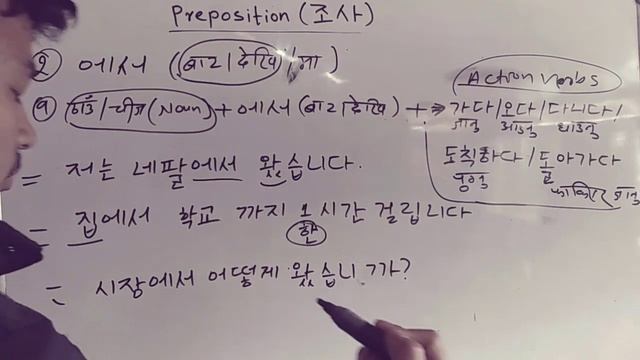 Preposition (조사)
② 에서 (बाट/देखि/मा)
Action verbs
ⓐ ठाउँ/चीज (Noun) + 에서 (बाट/देखि) + ⇒ 가다/오다/다니다/
जानु आउनु धाउनु
도착하다/돌아가다
पुग्नु फर्किएर जानु
= 저는 네팔에서 왔습니다.
= 집에서 학교 까지 1시간 걸립니다
한
= 시장에서 어떻게 왔습니까?